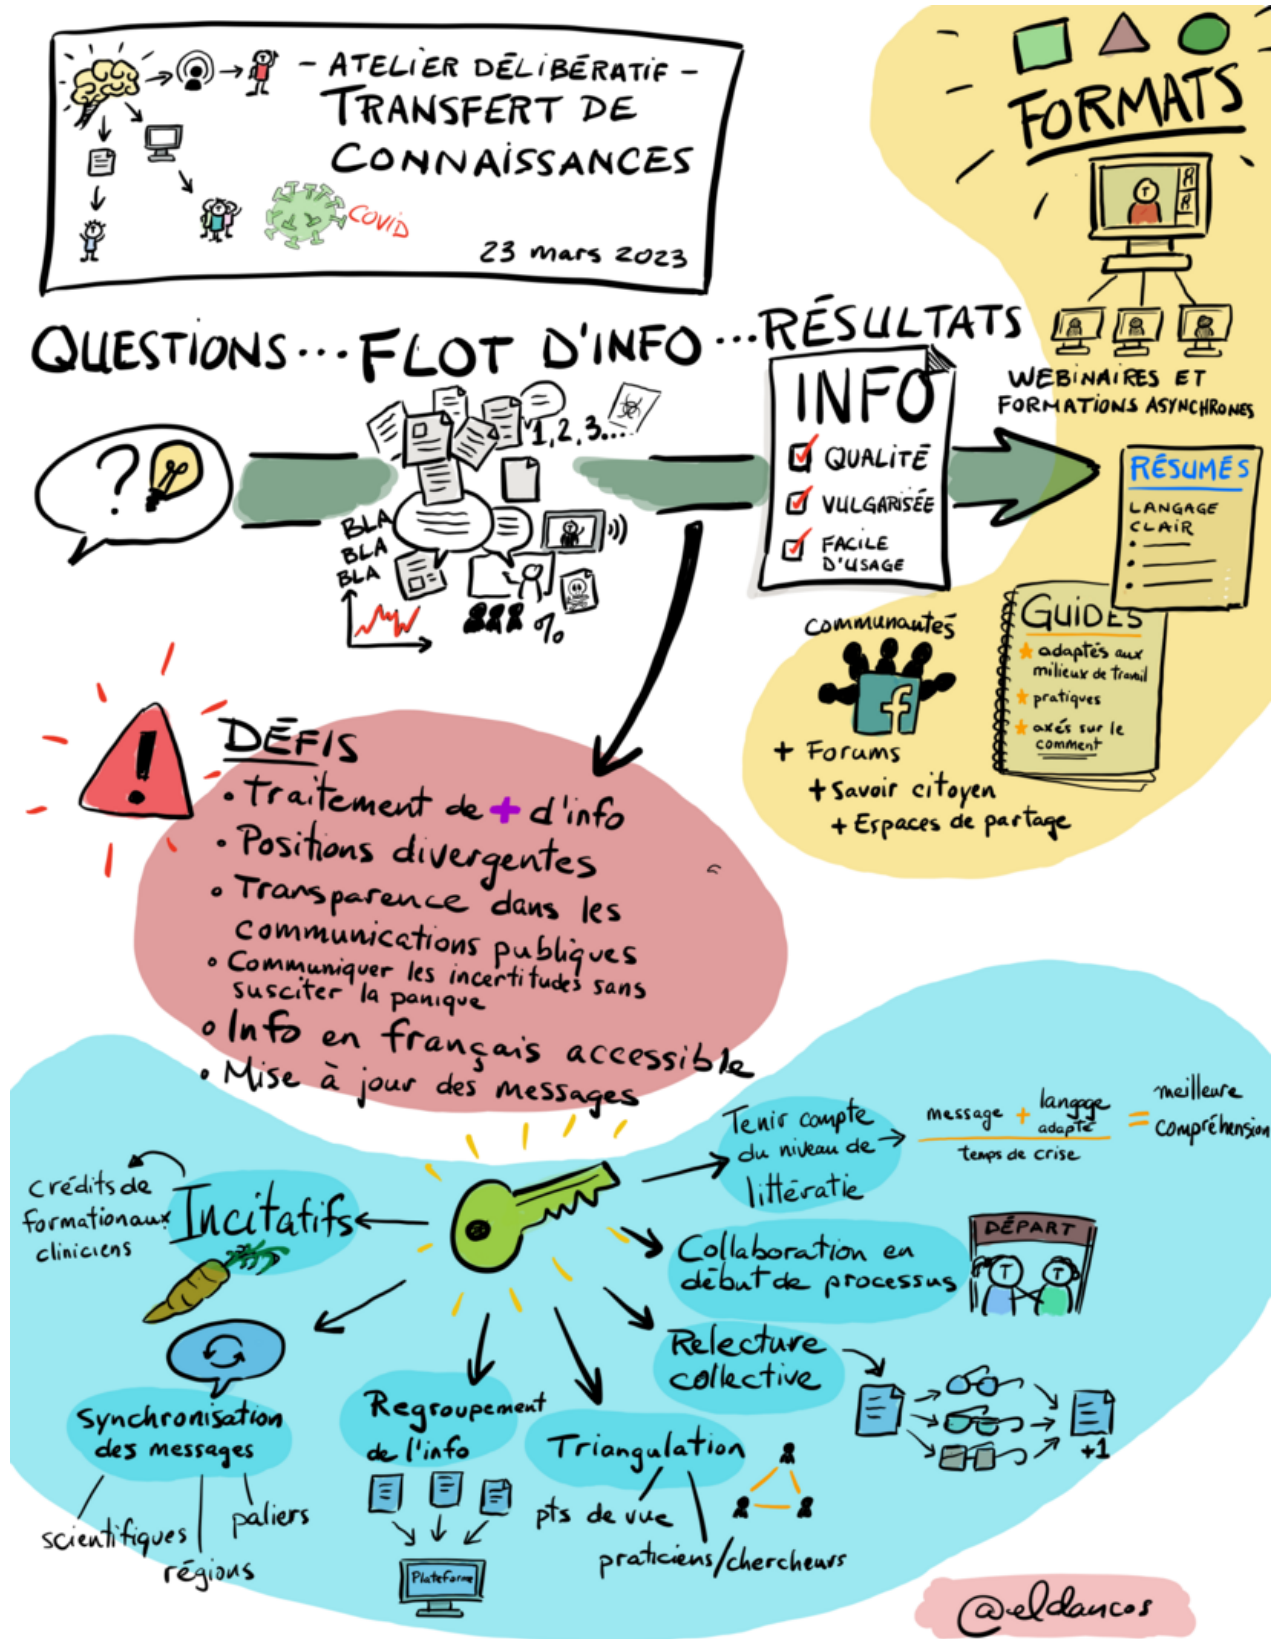 - ATELIER DÉLIBÉRATIF -
TRANSFERT DE
CONNAISSANCES
COVID
23 mars 2023
FORMATS
WEBINAIRES ET
FORMATIONS ASYNCHRONES
QUESTIONS... FLOT D'INFO ...RÉSULTATS
?
1, 2, 3....
BLA
BLA
BLA
%
INFO
QUALITÉ
VULGARISÉE
FACILE
D'USAGE
RÉSUMÉS
LANGAGE
CLAIR
GUIDES
adaptés aux
milieux de travail
pratiques
axés sur le
comment
Communautés
f
+ Forums
+ Savoir citoyen
+ Espaces de partage
!
DÉFIS
• Traitement de + d'info
• Positions divergentes
• Transparence dans les
communications publiques
• Communiquer les incertitudes sans
susciter la panique
• Info en français accessible
• Mise à jour des messages
Tenir compte
du niveau de
littératie
message + langage
adapté
temps de crise
= meilleure
compréhension
Incitatifs
crédits de
formation aux
cliniciens
Collaboration en
début de processus
DÉPART
Relecture
collective
+1
Synchronisation
des messages
scientifiques
régions
paliers
Regroupement
de l'info
Plateforme
Triangulation
pts de vue
praticiens/chercheurs
@eldancos